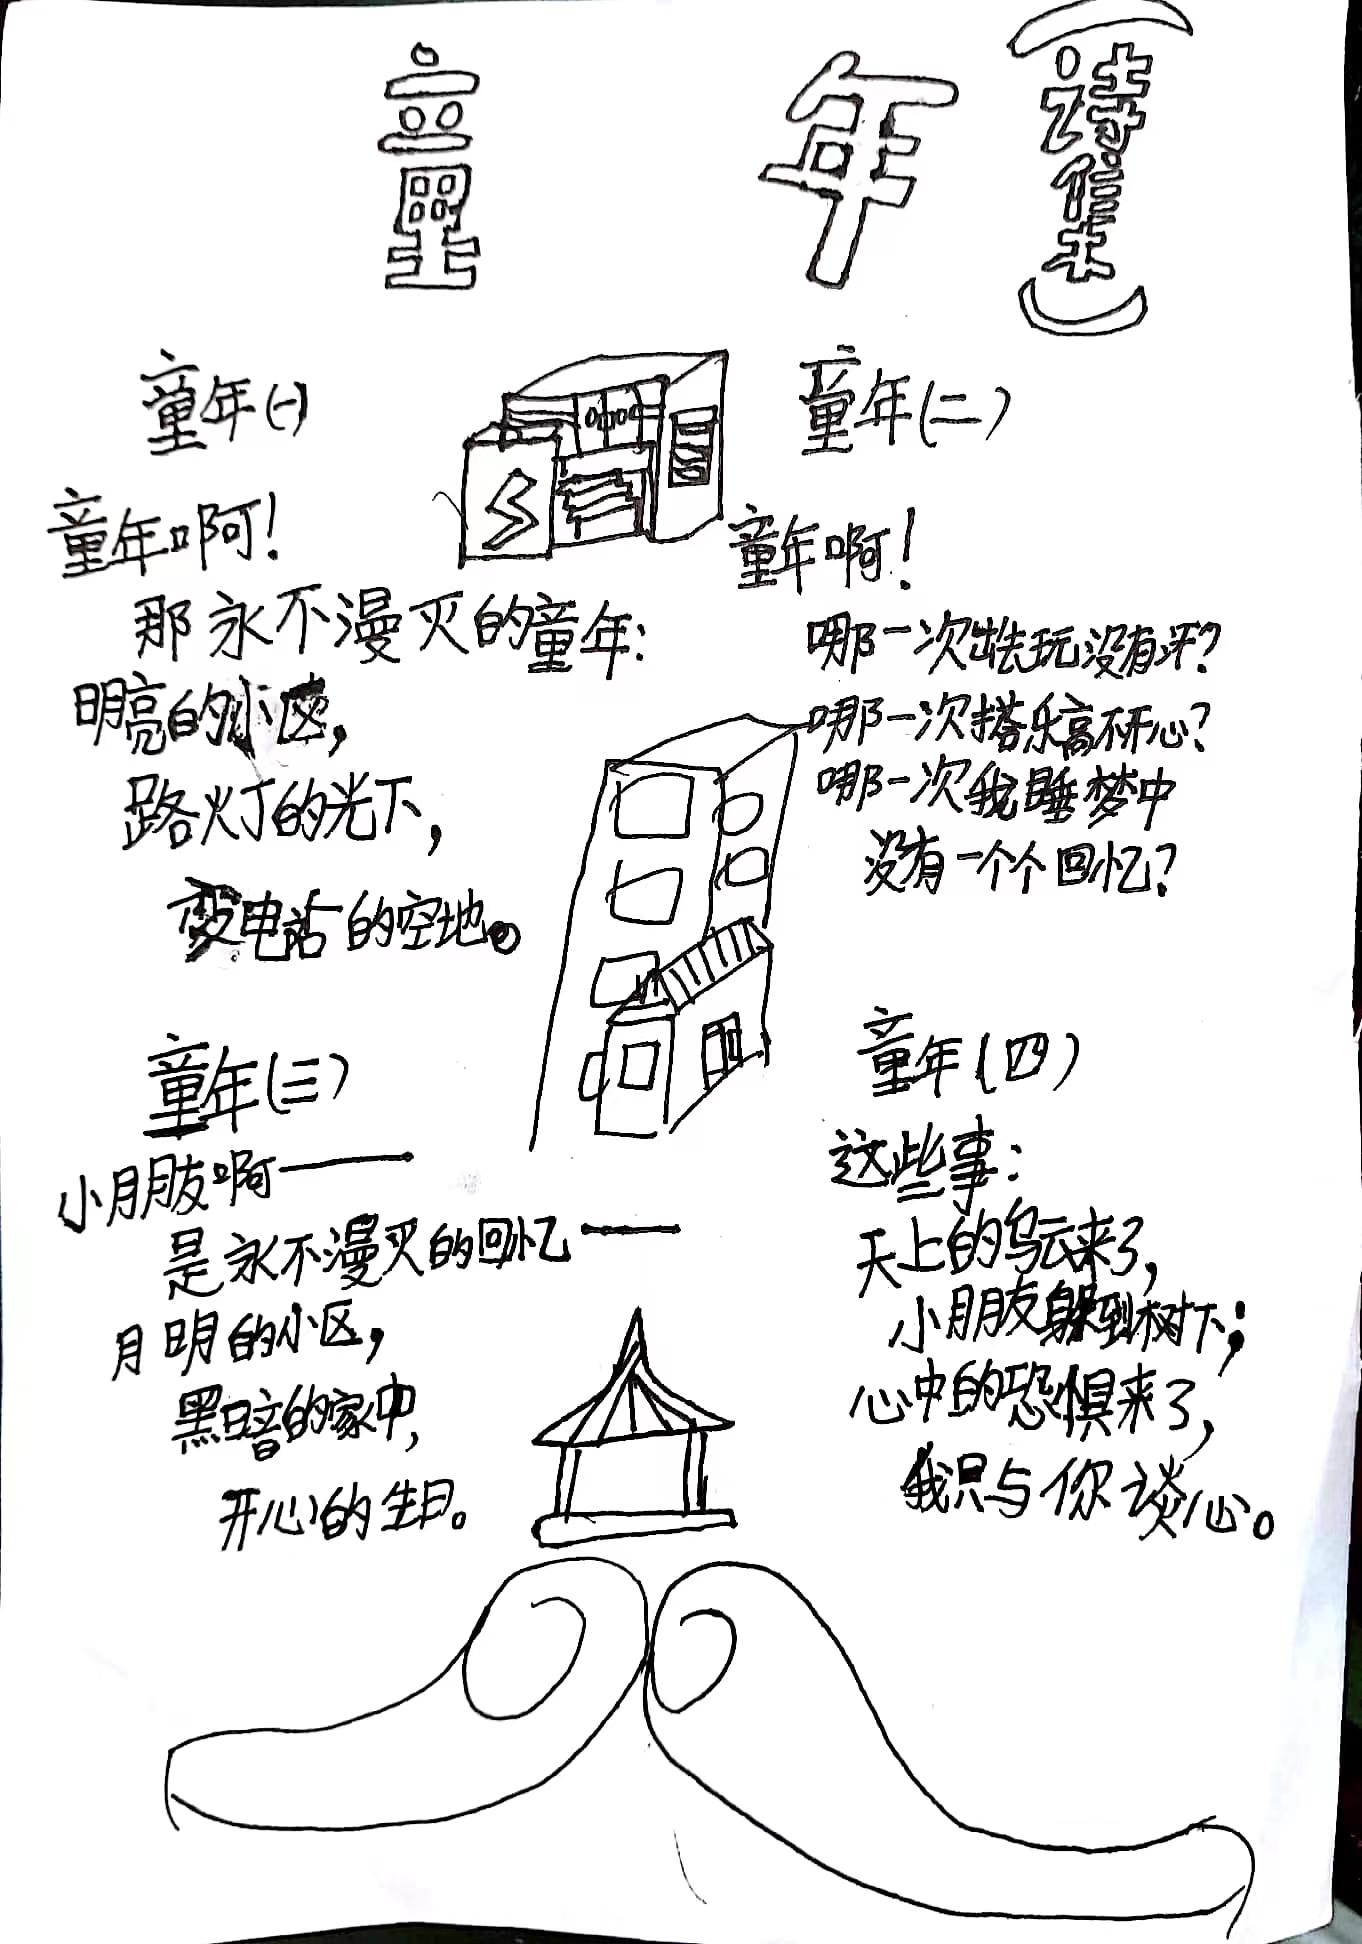 童年
(诗集)
童年(一)
童年啊!
那永不漫灭的童年:
明亮的小区,
路灯的光下,
变电站的空地。
童年(二)
童年啊!
哪一次出去玩没有汗?
哪一次搭乐高不开心?
哪一次我睡梦中
没有一个个回忆?
童年(三)
小朋友啊——
是永不漫灭的回忆——
月明的小区,
黑暗的家中,
开心的生日。
童年(四)
这些事:
天上的乌云来了,
小朋友躲到树下;
心中的恐惧来了,
我只与你谈心。